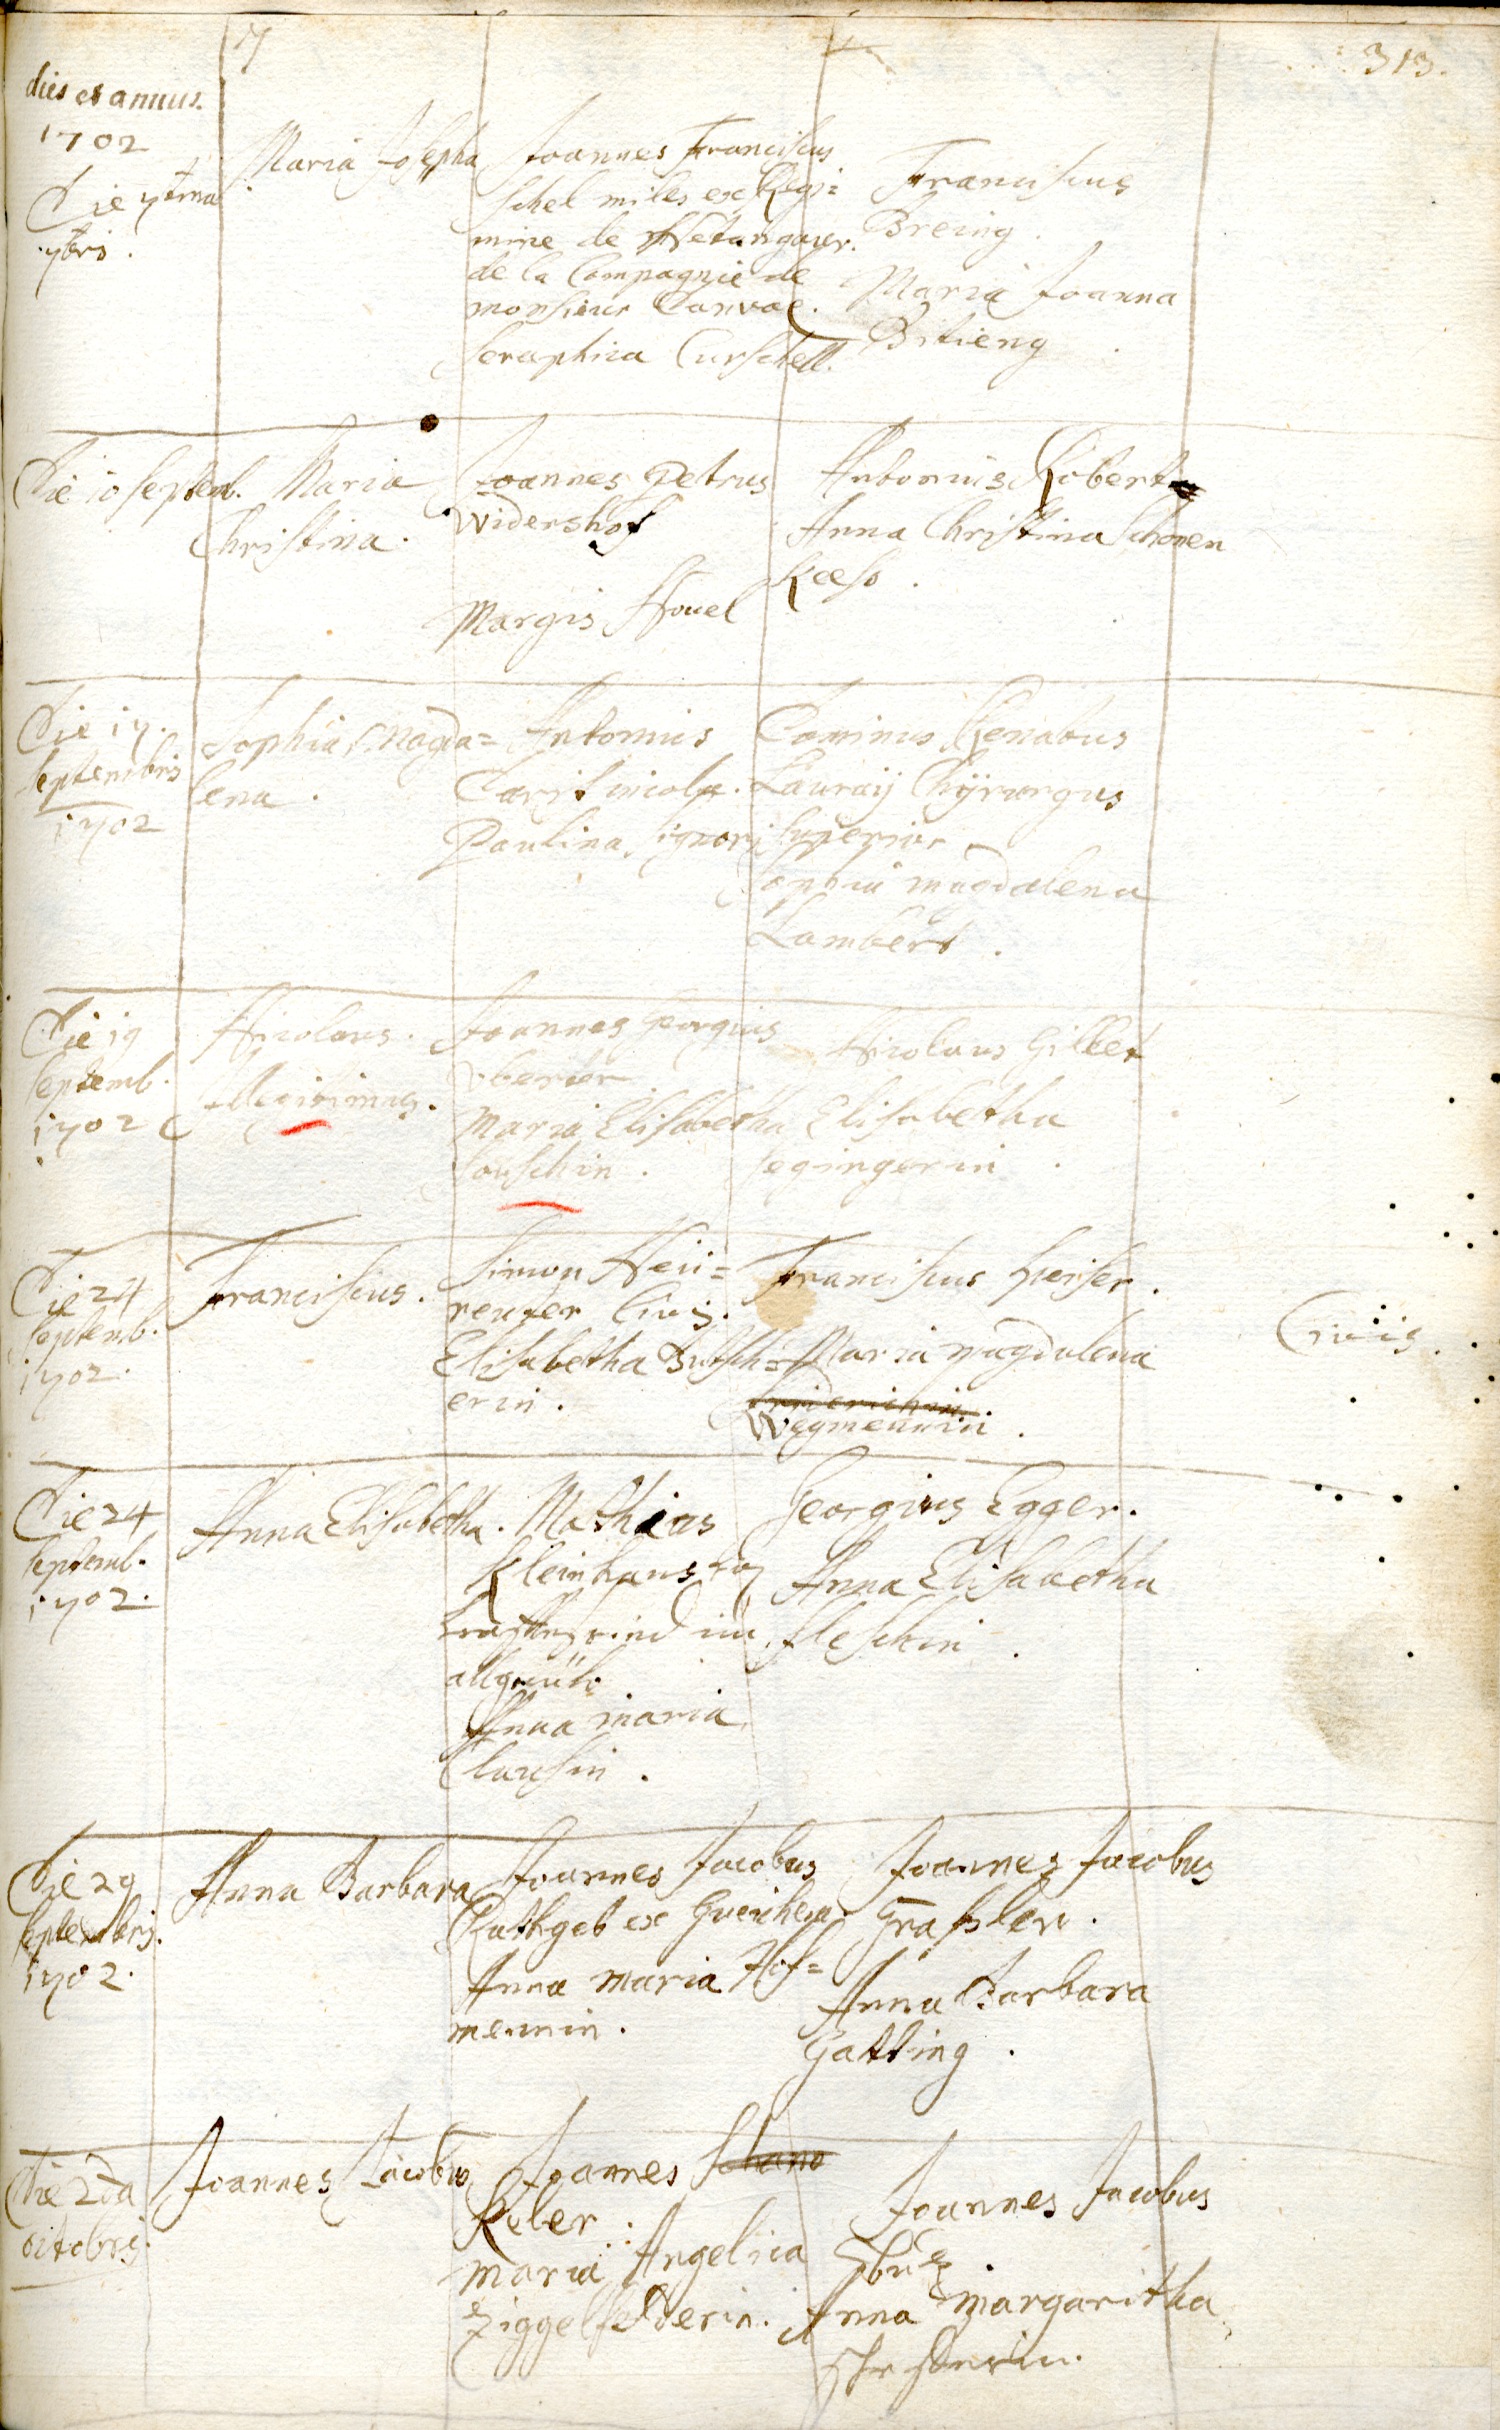 313.
dies et annus.
1702
Die 7tima
7bris.
Maria Josepha
Joannes Franciscus
schel miles ex Regi=
mine de
de la Compagnie de
monsieur
Seraphica Curschell.
Franciscus
Breing.
Maria Joanna
Die 10 septemb.
Maria
Christina.
Joannes Petrus
Widershof
Margis Houel
Antonius Robert
Anna Christina Schonen
Kaess.
Die 17.
septembris
1702
Sophia Magda=
lena.
Antonius
Paulina Signori
Renatus
Lauraij Chijrurgus
superior
Sophia magdalena
Lambert.
Die 19
septemb.
1702
Nicolaus.
illegitimus.
Joannes Georgius
Maria Elisabetha
Nicolaus Gillet
Elisabetha
segingerin.
Die 24
septemb.
1702.
Franciscus.
Simon Neü=
reuter Civis.
Elisabetha Butsch=
erin.
Franciscus Heiser.
Maria magdalena
friderichin
Wegmennin.
Civis.
Die 24
septemb.
1702.
Anna Elisabetha.
Mathias
Kleinhans
allgaüh.
Anna maria
Clausin.
Georgius Egger.
Anna Elisabetha
fleschin.
Die 29
septembris.
1702.
Anna Barbara
Joannes Jacobus
Rathgeb ex
Anna Maria Hof=
mennin.
Joannes Jacobus
Grassler.
Anna Barbara
Gatting.
Die 2da
octobris.
Joannes Jacobus
Joannes Schano
Keler.
Maria Angelica
Ziggelfelderin.
Joannes Jacobus
Anna margaritha